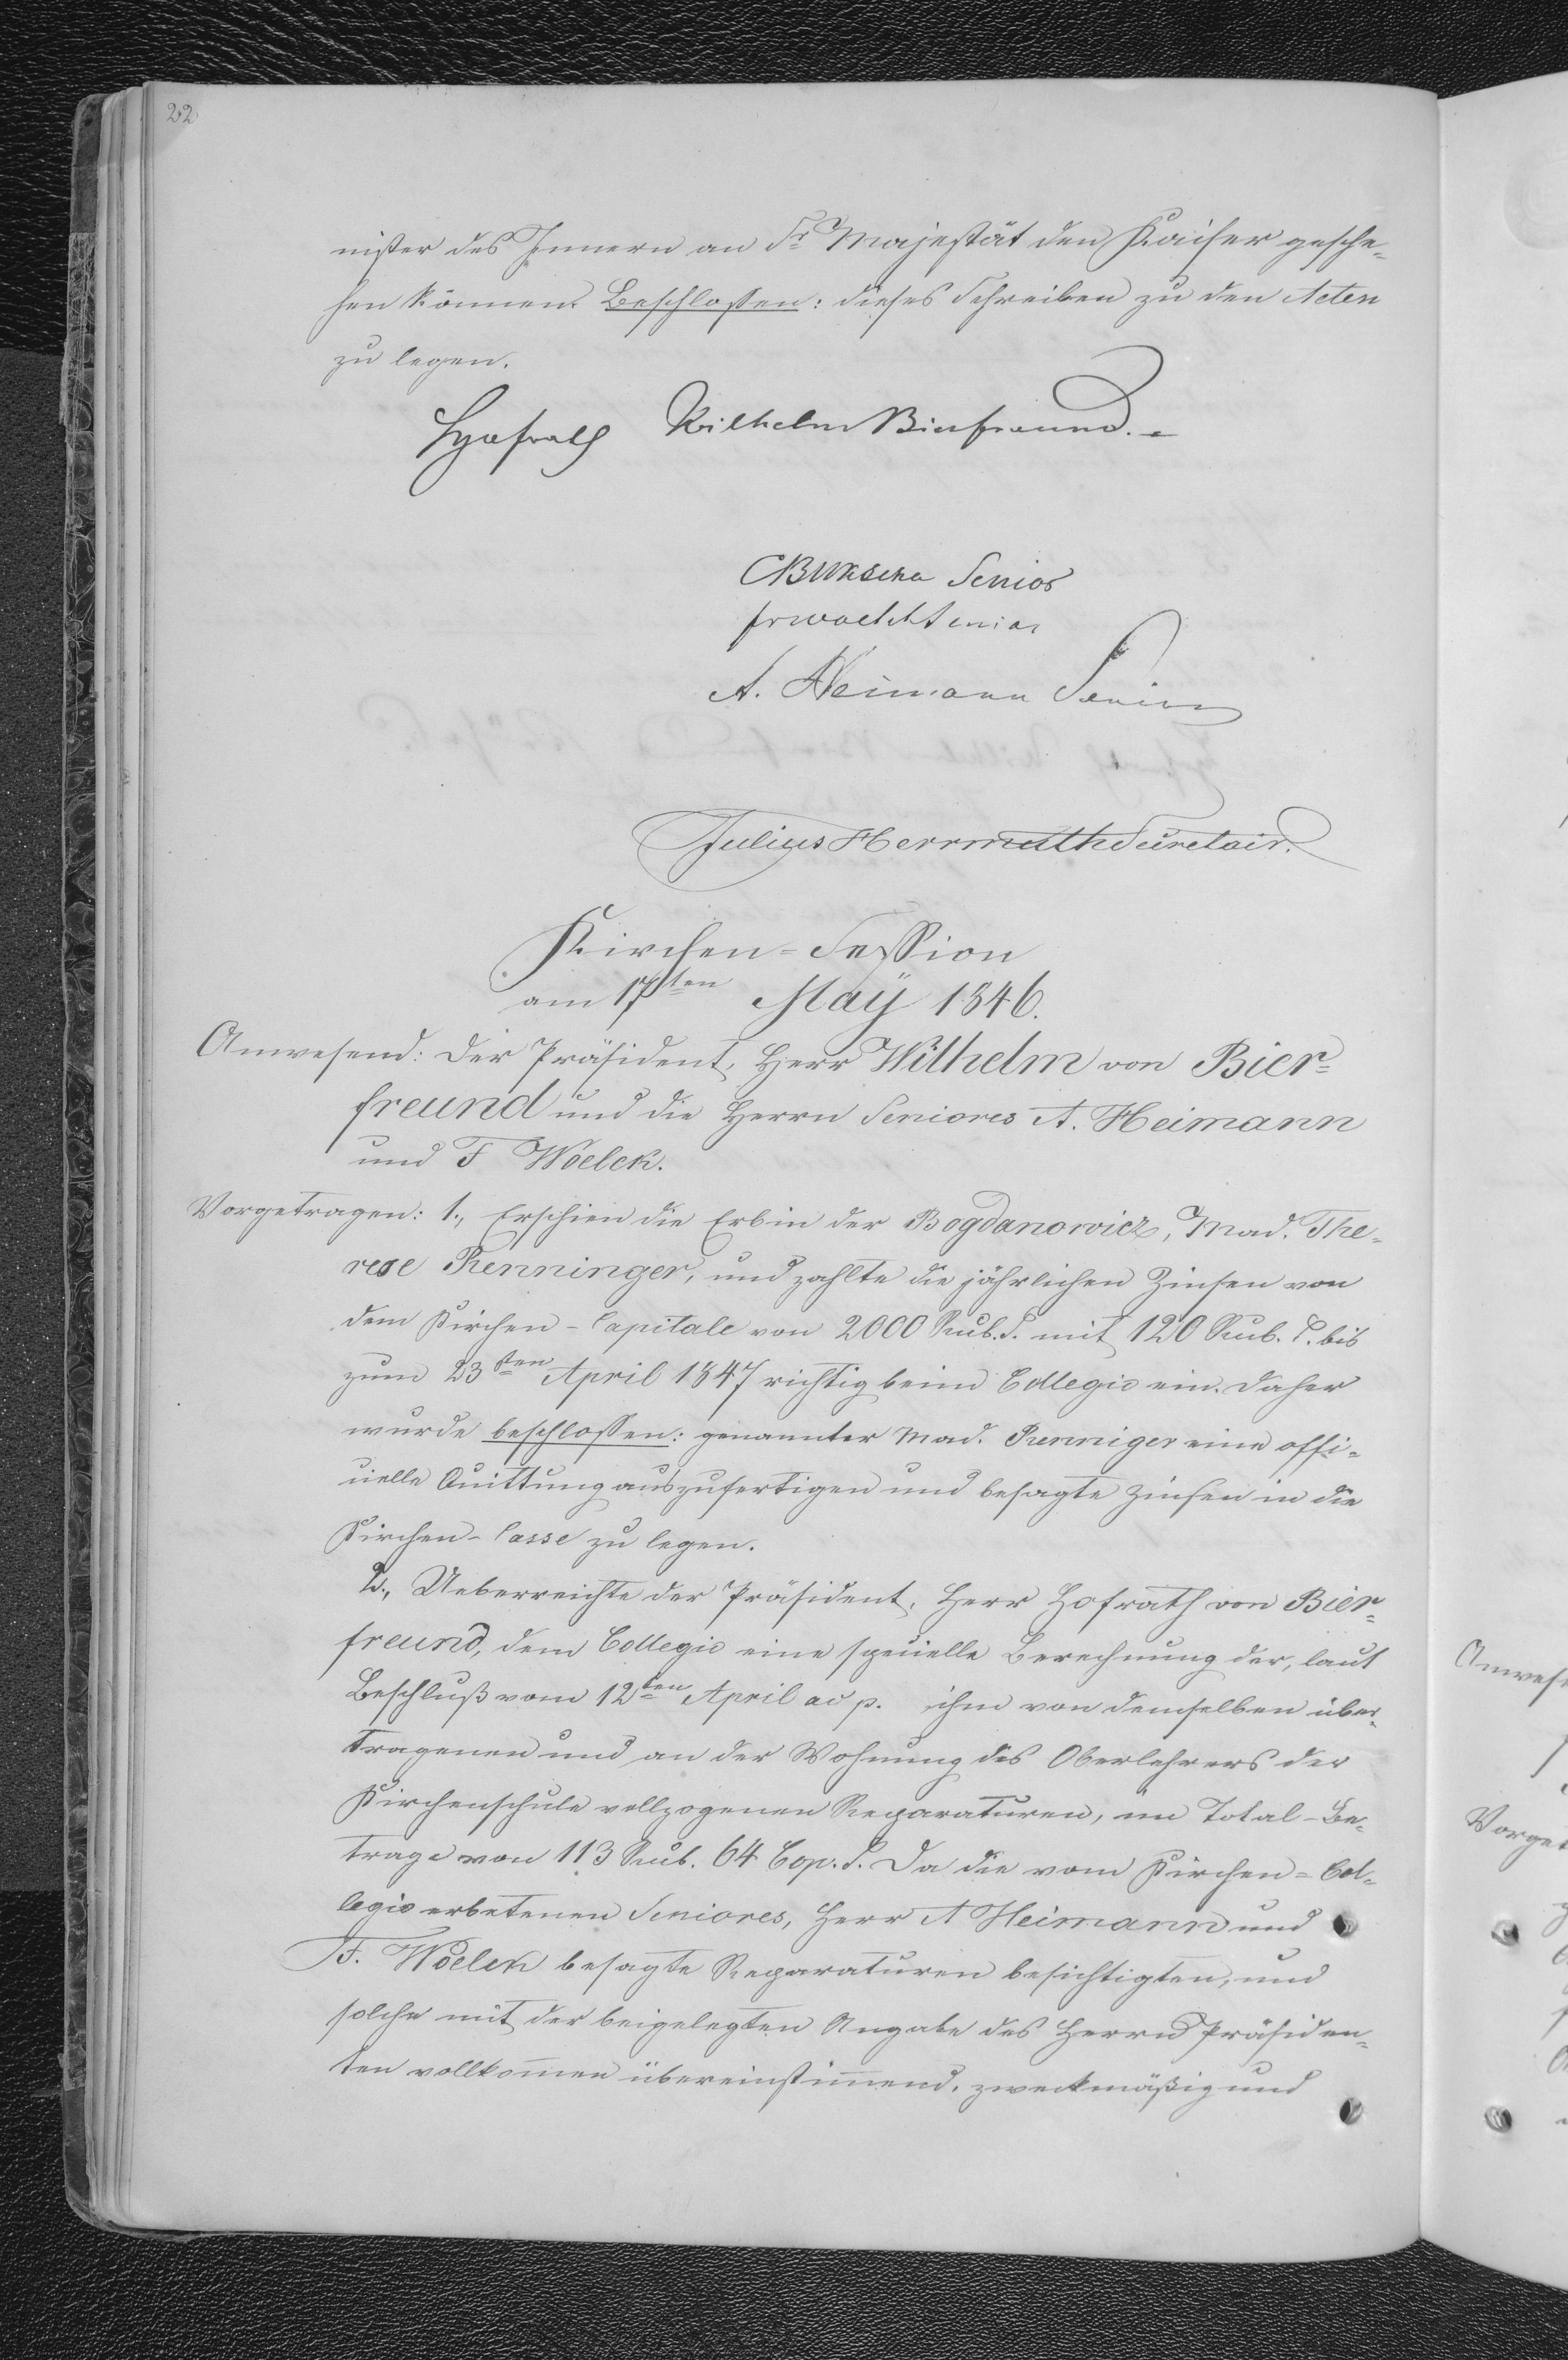 22
nister des Innern an Sr Majestät den Kaiser gesche-
hen können. Beschlossen: dieses Schreiben zu den Acten
zu legen.
Hofrath Wilhelm Bierfreund.
Senior
Senior
A. Heimann Senior
Julius Herrmuth Secretair.
Kirchen-Session
am 17ten Maÿ 1846.
Anwesend: Der Präsident, Herr Wilhelm von Bier-
freund und die Herrn Seniores A. Heimann
und F Woelck.
Vorgetragen: 1., Erschien die Erbin der Bogdanowicz, Mad. The-
rese Renninger, und zahlte die jährlichen Zinsen von
dem Kirchen-Capitale von 2000 Rub. S. mit 120 Rub. S. bis
zum 23sten April 1847 richtig beim Collegio ein. Daher
wurde beschlossen: genannter Mad. Renniger eine offi-
cielle Quittung auszufertigen und besagte Zinsen in die
Kirchen-Casse zu legen.
2., Ueberreichte der Präsident, Herr Hofrath von Bier-
freund, dem Collegio eine specielle Berechnung der, laut
Beschluß vom 12ten April ihm von demselben über-
tragenen und an der Wohnung des Oberlehrers der
Kirchenschule vollzogenen Reparaturen, im Total-Be-
trage von 113 Rub. 64 Cop. S. Da die vom Kirchen-Col-
legio erbetenen Seniores, Herr A Heimann und
F. Woelck besagte Reparaturen besichtigten, und
solche mit der beigelegten Angabe des Herrn Präsiden-
ten vollkom̅en übereinstim̅end, zweckmäßig und